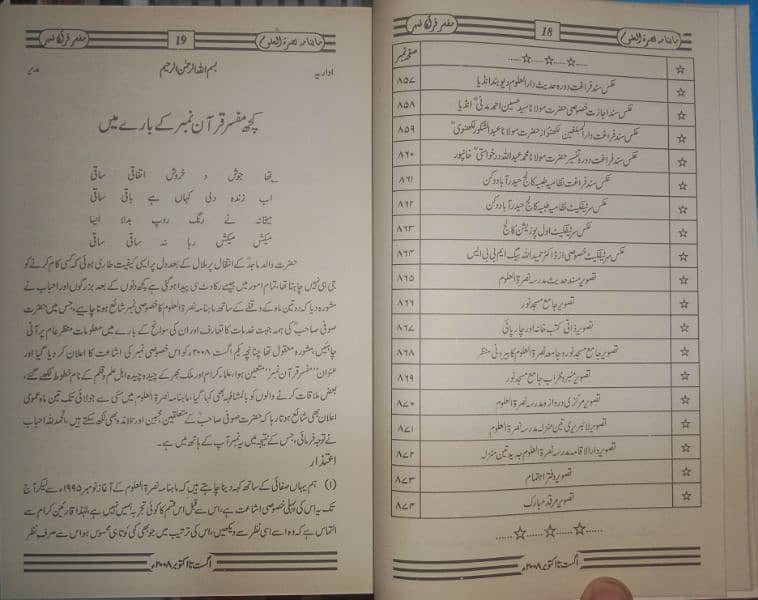 ماہنامہ نصرۃ العلوم 18 مفسر قرآن نمبر
صفحہ نمبر
عکس سند فراغت دورہ حدیث دارالعلوم دیوبند انڈیا ۸۵۷
عکس سند اجازت خصوصی حضرت مولانا سید حسین احمد مدنیؒ انڈیا ۸۵۸
عکس سند فراغت دارالمبلغین لکھنؤ از حضرت مولانا عبدالشکور لکھنویؒ ۸۵۹
عکس سند فراغت دورہ تفسیر حضرت مولانا محمد عبداللہ درخواستیؒ خانپور ۸۶۰
عکس سند فراغت نظامیہ طبیہ کالج حیدرآباد دکن ۸۶۱
عکس سرٹیفکیٹ نظامیہ طبیہ کالج حیدرآباد دکن ۸۶۲
عکس سرٹیفکیٹ اول پوزیشن کالج ۸۶۳
عکس سرٹیفکیٹ خصوصی از ڈاکٹر حمید اللہ بیگ ایم بی بی ایس ۸۶۴
تصویر مسند حدیث مدرسہ نصرۃ العلوم ۸۶۵
تصویر جامع مسجد نور ۸۶۶
تصویر ذاتی کتب خانہ اور چارپائی ۸۶۷
تصویر جامع مسجد نور و جامعہ نصرۃ العلوم کا بیرونی منظر ۸۶۸
تصویر منبر و محراب جامع مسجد نور ۸۶۹
تصویر مرکزی دروازہ مدرسہ نصرۃ العلوم ۸۷۰
تصویر لائبریری تین منزلہ مدرسہ نصرۃ العلوم ۸۷۱
تصویر دارالاقامہ مدرسہ نصرۃ العلوم جدید تین منزلہ ۸۷۲
تصویر دفتر اہتمام ۸۷۳
تصویر مرقد مبارک ۸۷۴
اگست تا اکتوبر ۲۰۰۸ء
ماہنامہ نصرۃ العلوم 19 مفسر قرآن نمبر
اداریہ بسم اللہ الرحمٰن الرحیم مدیر
کچھ مفسر قرآن نمبر کے بارے میں
تھا جوش و خروش اتفاقی ساقی
اب زندہ دلی کہاں ہے باقی ساقی
میخانہ نے رنگ روپ بدلا ایسا
میکش میکش رہا نہ ساقی ساقی
حضرت والد ماجدؒ کے انتقال پر ملال کے بعد دل پر ایسی کیفیت طاری ہوئی کہ کسی کام کرنے کو
جی ہی نہیں چاہتا تھا، تمام امور میں جیسے رکاوٹ سی پیدا ہو گئی ہے کچھ دنوں کے بعد بزرگوں اور احباب نے
مشورہ دیا کہ دو تین ماہ کے وقفے کے ساتھ ماہنامہ نصرۃ العلوم کا خصوصی نمبر شائع ہونا چاہیے، جس میں حضرت
صوفی صاحبؒ کی ہمہ جہت خدمات کا تعارف اور ان کی سوانح کے بارے میں معلومات منظر عام پر آنی
چاہئیں، مشورہ معقول تھا چنانچہ یکم اگست ۲۰۰۸ء کو اس خصوصی نمبر کی اشاعت کا اعلان کر دیا گیا اور
عنوان "مفسر قرآن نمبر" متعین ہوا، علماء کرام اور ملک بھر کے چیدہ چیدہ اہل علم و قلم کے نام خطوط لکھے گئے،
بعض ملاقات کرنے والوں کو بالمشافہ بھی کہا گیا، ماہنامہ نصرۃ العلوم میں مئی سے جولائی تک تین ماہ عمومی
اعلان بھی شائع ہوتا رہا کہ حضرت صوفی صاحبؒ کے متعلقین، محبین اور تلامذہ بھی لکھ سکتے ہیں، الحمدللہ احباب
نے توجہ فرمائی، جس کے نتیجہ میں یہ نمبر آپ کے ہاتھ میں ہے۔
اعتذار
(۱) ہم یہاں صفائی کے ساتھ کہہ دینا چاہتے ہیں کہ ماہنامہ نصرۃ العلوم کے آغاز نومبر ۱۹۹۵ء سے لیکر آج
تک یہ اس کی پہلی خصوصی اشاعت ہے، اس سے قبل اس قسم کا کوئی تجربہ ہمیں نہیں ہے، لہٰذا قارئین کرام سے
التماس ہے کہ وہ اسے اسی نظر سے دیکھیں، اس کی ترتیب میں جو بھی کمی کوتاہی محسوس ہو اس سے صرف نظر
اگست تا اکتوبر ۲۰۰۸ء